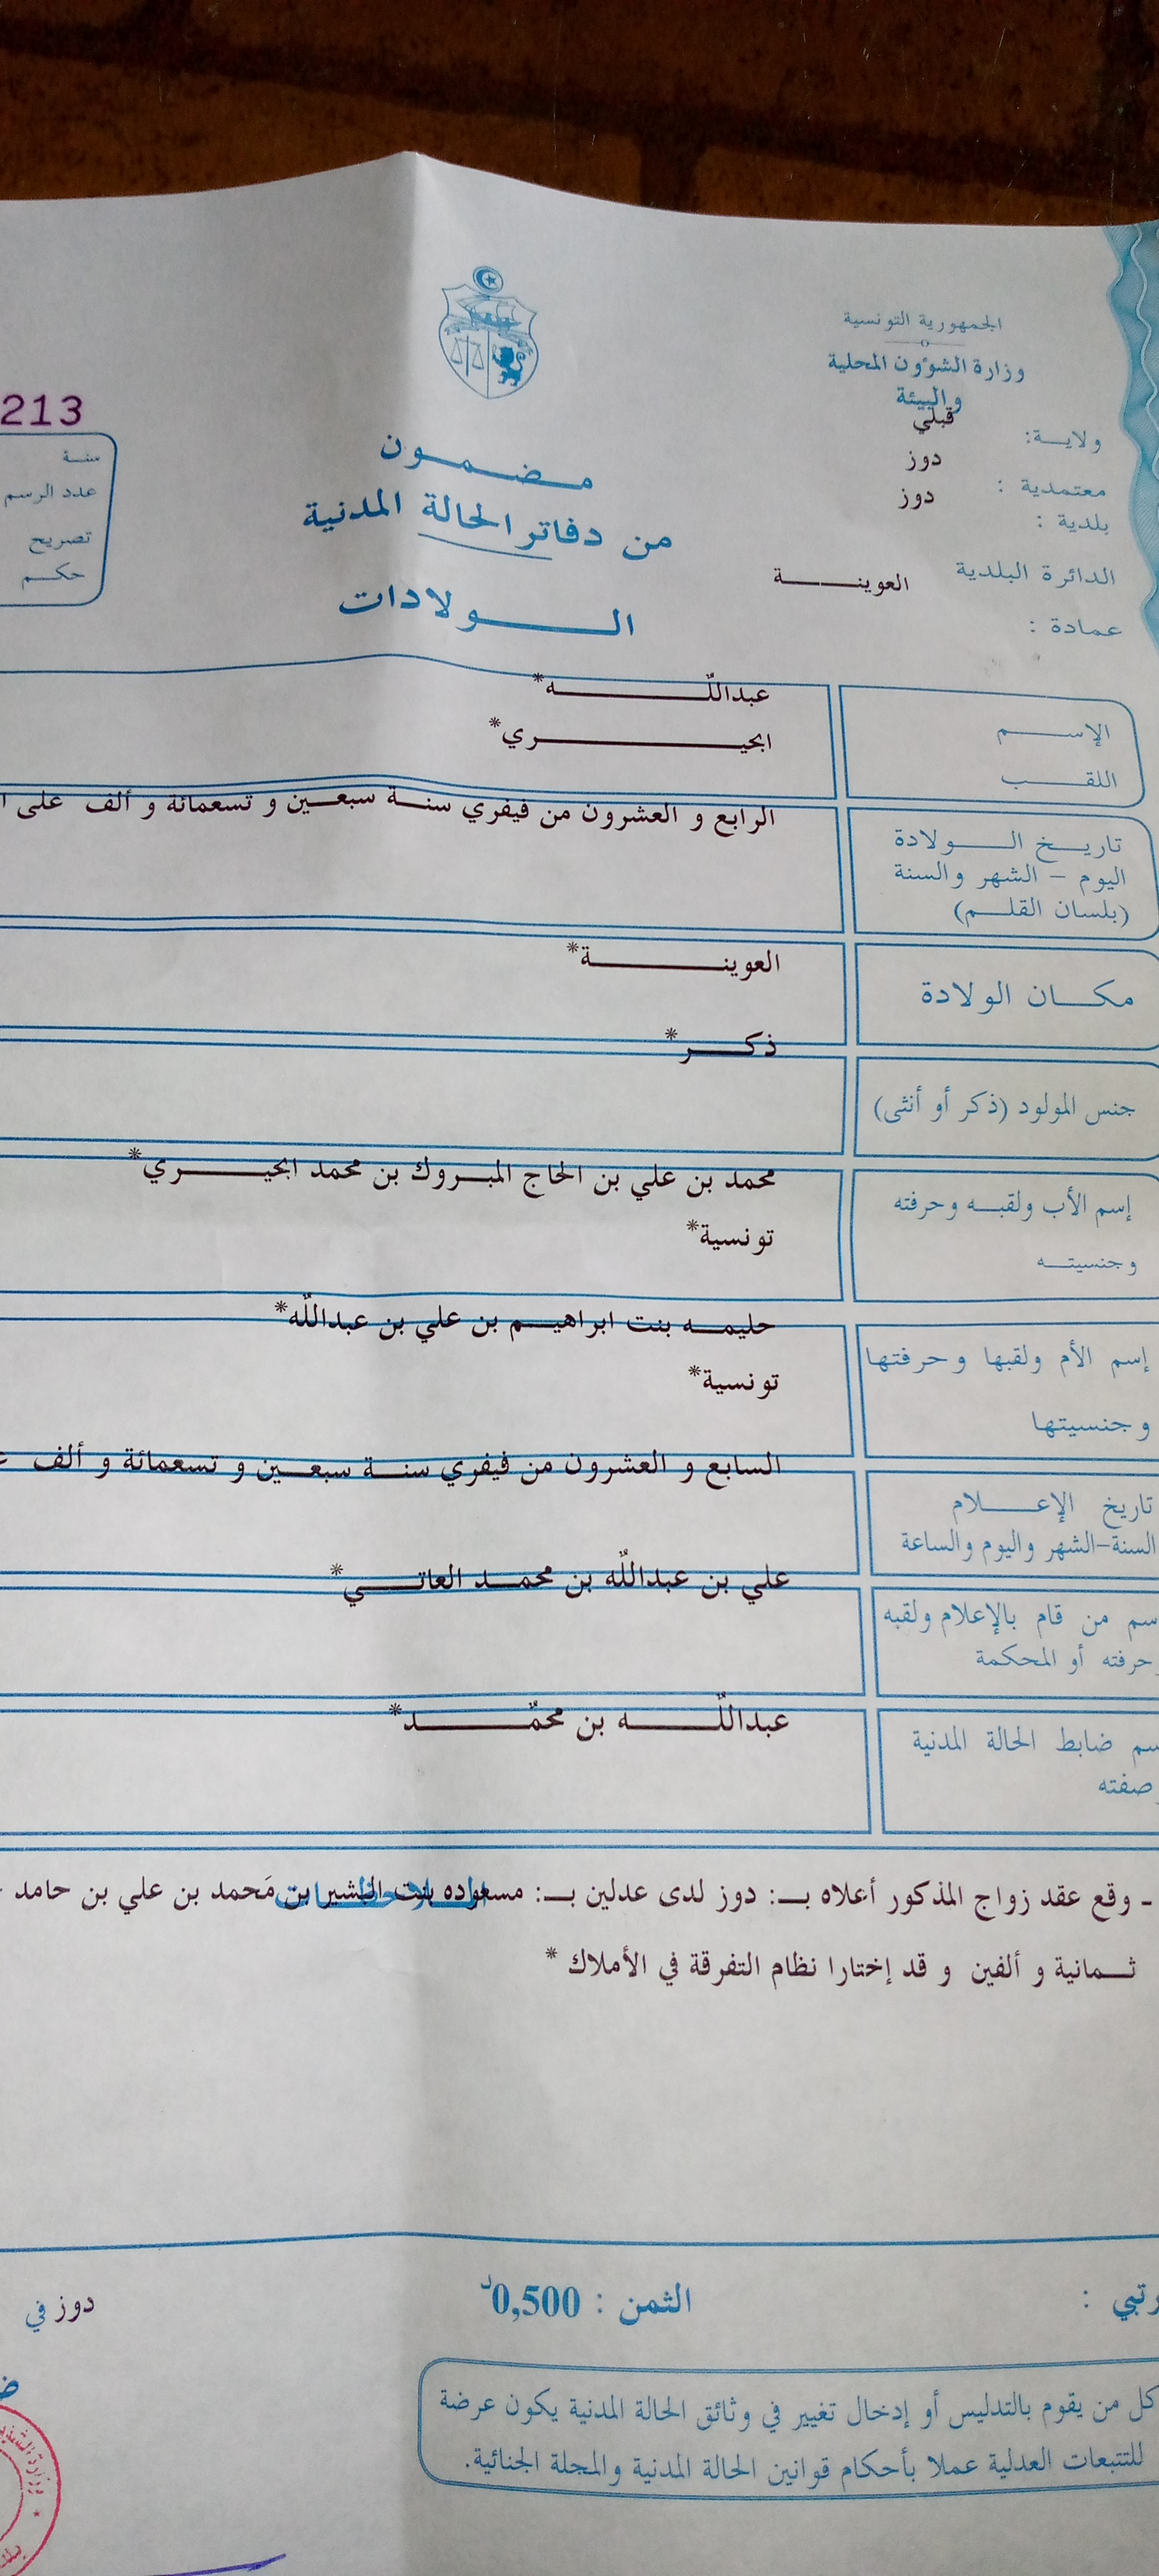 الجمهورية التونسية
وزارة الشؤون المحلية
والبيئة
ولاية: قبلي
معتمدية : دوز
بلدية : دوز
الدائرة البلدية العوينة
عمادة :
213
سنة
عدد الرسم
تصريح
حكم
مضمون
من دفاتر الحالة المدنية
الولادات
الإسم عبداللّه*
اللقب ابحيري*
تاريخ الولادة
اليوم - الشهر والسنة
(بلسان القلم)
الرابع و العشرون من فيفري سنة سبعين و تسعمائة و ألف على
مكان الولادة العوينة*
جنس المولود (ذكر أو أنثى) ذكر*
إسم الأب ولقبه وحرفته محمد بن علي بن الحاج المبروك بن محمد ابحيري*
وجنسيته تونسية*
إسم الأم ولقبها وحرفتها حليمه بنت ابراهيم بن علي بن عبداللّه*
وجنسيتها تونسية*
تاريخ الإعلام
السنة-الشهر واليوم والساعة
السابع و العشرون من فيفري سنة سبعين و تسعمائة و ألف
سم من قام بالإعلام ولقبه
حرفته أو المحكمة
علي بن عبداللّه بن محمد العاتي*
سم ضابط الحالة المدنية
صفته
عبداللّه بن محمّد*
الملاحظات
- وقع عقد زواج المذكور أعلاه بـ: دوز لدى عدلين بـ: مسعوده بنت البشير بن مَحمد بن علي بن حامد
ثمانية و ألفين و قد إختارا نظام التفرقة في الأملاك *
رتبي :
الثمن : 0,500د
دوز في
كل من يقوم بالتدليس أو إدخال تغيير في وثائق الحالة المدنية يكون عرضة
للتتبعات العدلية عملا بأحكام قوانين الحالة المدنية والمجلة الجنائية.